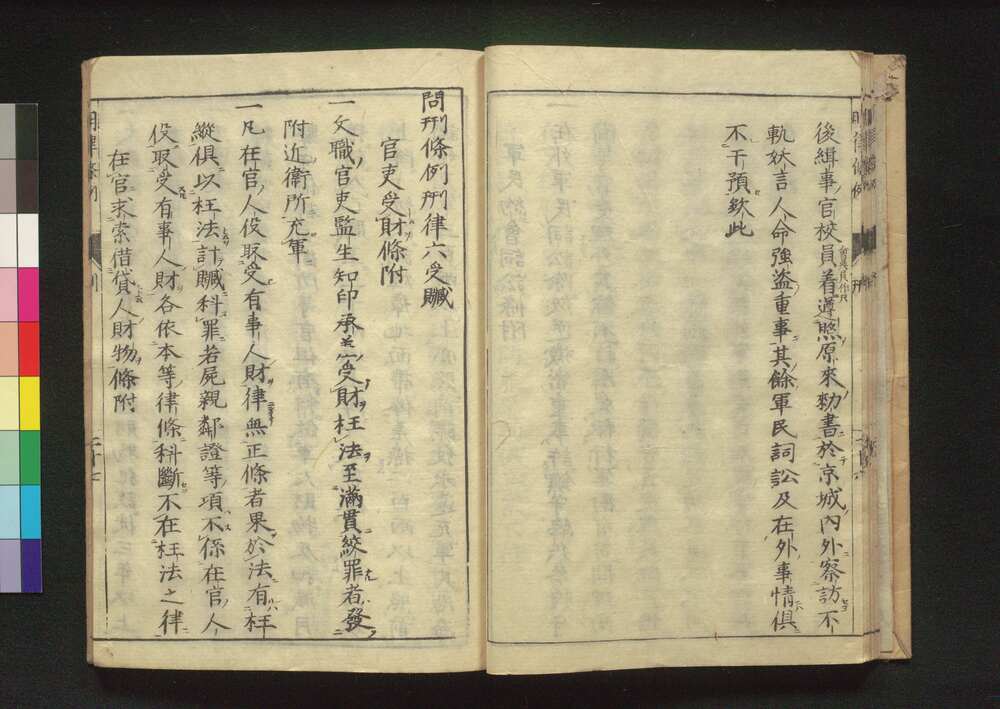 後緝事官校員着遵照原來勑書於京城內外察訪不
軌妖言人命強盜重事其餘軍民詞訟及在外事情俱
不干預欽此
問刑條例刑律六受贓
官吏受財條附
一文職官吏監生知印承差受財枉法至滿貫絞罪者發
附近衛所充軍
一凡在官人役取受有事人財律無正條者果於法有枉
縱俱以枉法計贓科罪若屍親鄰證等項不係在官人
役取受有事人財各依本等律條科斷不在枉法之律
在官求索借貸人財物條附